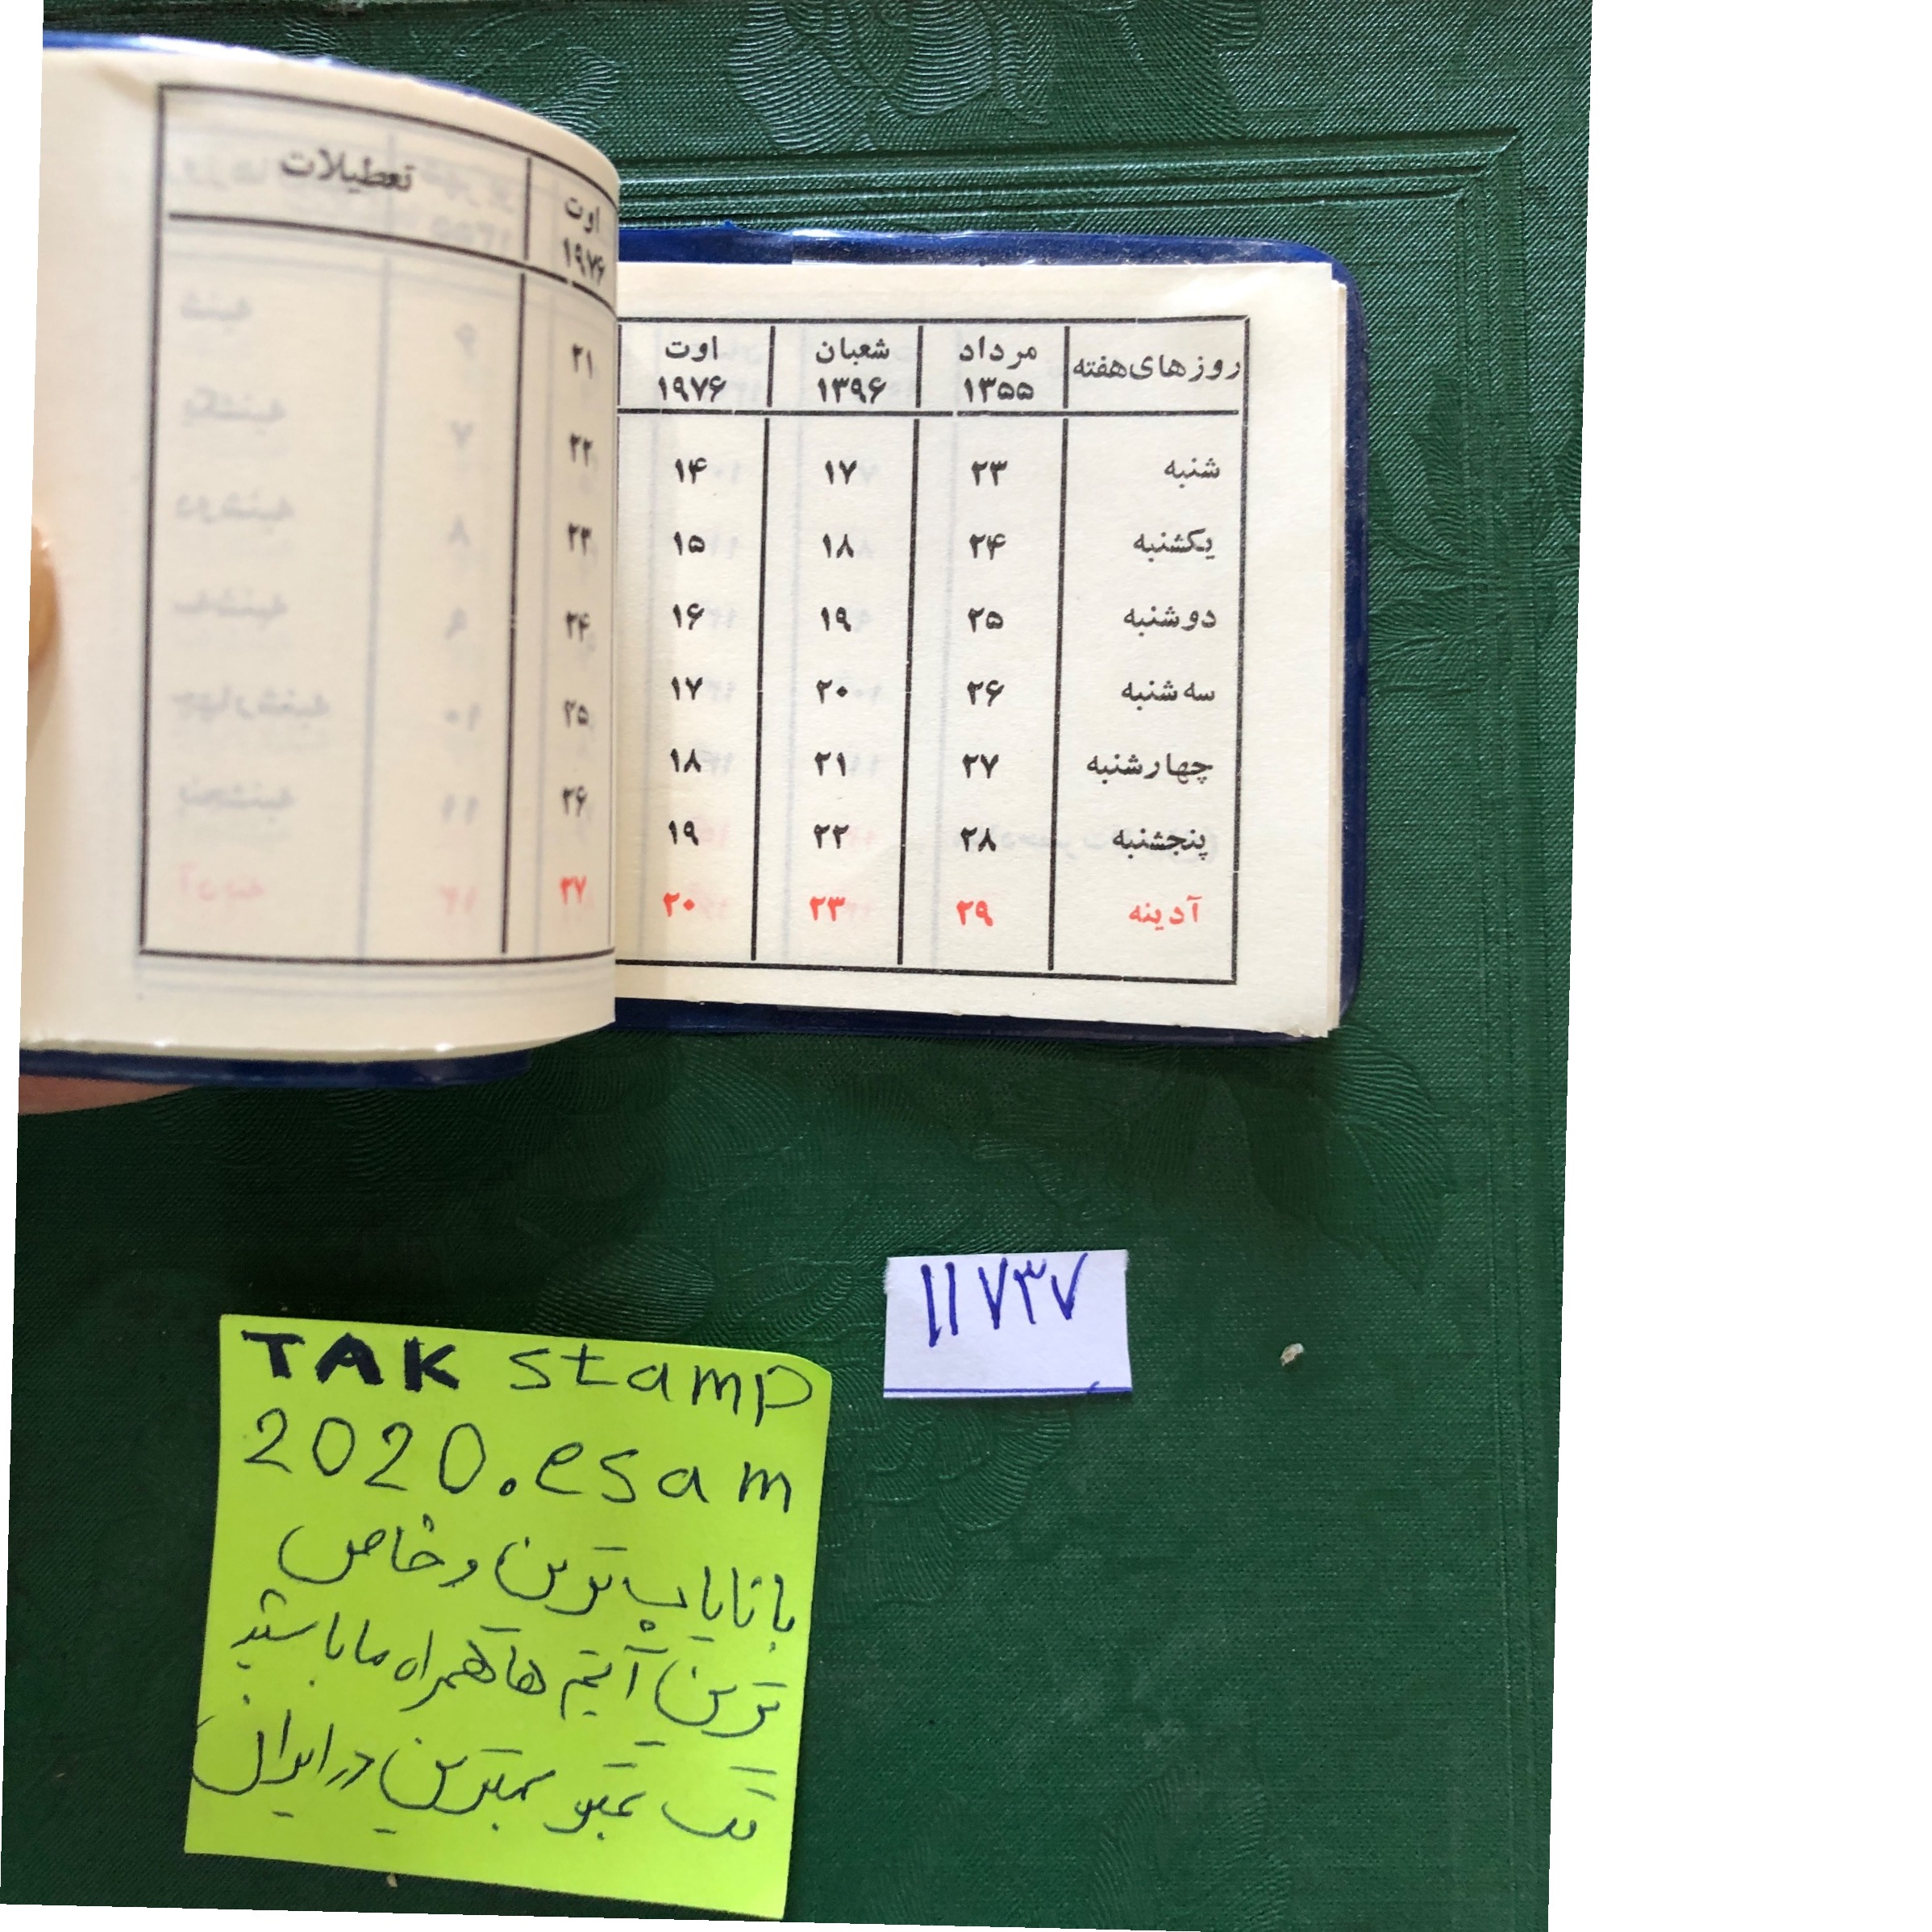 روزهای هفته مرداد ۱۳۵۵ شعبان ۱۳۹۶ اوت ۱۹۷۶
شنبه ۲۳ ۱۷ ۱۴
یکشنبه ۲۴ ۱۸ ۱۵
دوشنبه ۲۵ ۱۹ ۱۶
سه شنبه ۲۶ ۲۰ ۱۷
چهارشنبه ۲۷ ۲۱ ۱۸
پنجشنبه ۲۸ ۲۲ ۱۹
آدینه ۲۹ ۲۳ ۲۰
اوت ۱۹۷۶ تعطیلات
۲۱
۲۲
۲۳
۲۴
۲۵
۲۶
۲۷
۱۱۷۳۷
TAK stamp
2020.esam
با نایاب ترین و خاص
ترین آیتم ها همراه ما باشید
تک تمبر بهترین در ایران